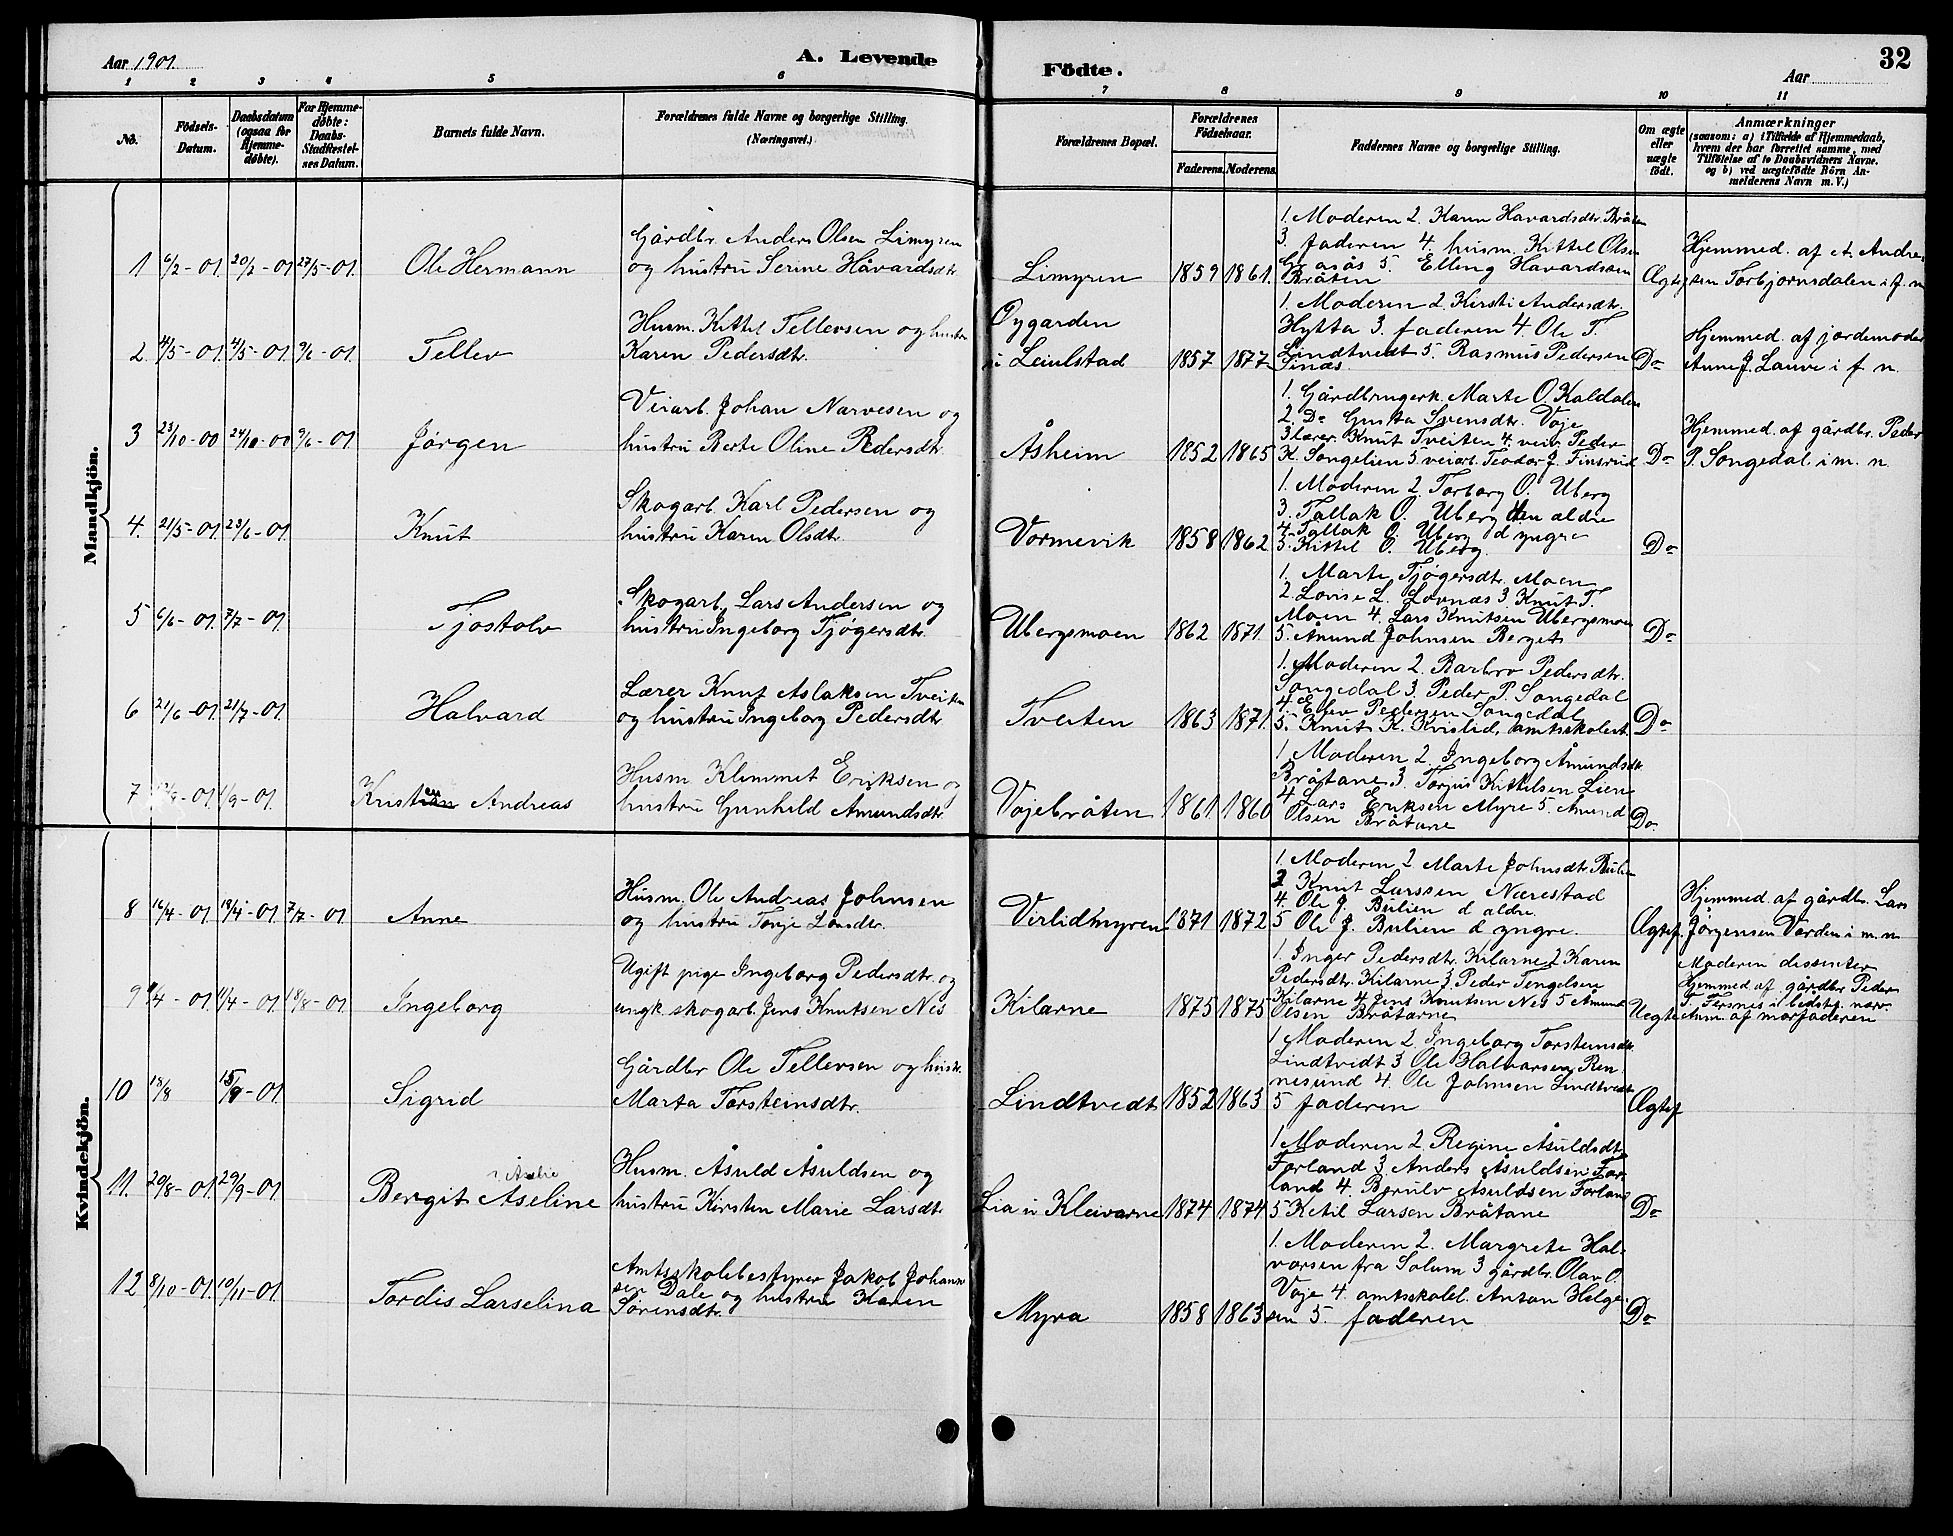 Aar 1901.
A. Levende
Födte.
Aar
32
1 2 3 4 5 6 7 8 9 10 11
No.
Födsels-Datum.
Daabsdatum (ogsaa for Hjemme-døbte).
For Hjemme-døbte: Daabs-Stadfæstel-ses Datum.
Barnets fulde Navn.
Forældrenes fulde Navne og borgerlige Stilling. (Næringsvei.)
Forældrenes Bopæl.
Forældrenes Födselsaar.
Faderens. Moderens.
Faddernes Navne og borgerlige Stilling.
Om ægte eller uægte født.
Anmærkninger
(saasom: a) i Tilfælde af Hjemmedaab, hvem der har forrettet samme, med Tilföielse af to Daabsvidners Navne. og b) ved uægtefødte Börn An-melderens Navn m. V.)
Mandkjön.
1 6/2-01 20/2-01 27/5-01 Ole Hermann
Gårdbr. Anders Olsen Limyren
og hustru Serine Håvardsdtr.
Limyren 1859 1861.
1. Moderen 2. Karen Havardsdtr. Bråten
3. faderen 4. husm. Kittel Olsen
5. Elling Havardsen
Bråten
Ægte
Hjemmed. af et. Andre
sen Torbjørnsdalen i f. n
2. 4/5-01. 4/5-01. 9/6-01 Tellev
Husm. Kittel Tellevsen og hustru
Karen Pedersdtr.
Øygarden
u Leiulstad 1857 1877
1. Moderen 2. Kirsti Andersdtr.
Hytta 3. faderen 4. Ole T.
Lindtvedt 5. Rasmus Pedersen
Sinæs.
Do
Hjemmed. af jordemoder
Anne J. Lauve i f n.
3 23/10-00 24/10-00 9/6-01 Jørgen
Veiarb. Johan Narvesen og
hustru Berte Oline Pedersdtr
Åsheim 1852 1865
1. Gårdbrugerk. Marte O. Kaldalen
2. Do Gusta Svensdtr. Voje
3 lærer Knut Tveiten 4. veiv. Peder
K. Songelien 5 veiarb. Teodor J. Finsrud
Do
Hjemmed. af gårdbr. Peder
P. Songedal i m. n.
4. 21/5-01 23/6-01 Knut
Skogarb. Karl Pedersen og
hustru Karen Olsdtr.
Vormevik 1858 1862
1. Moderen 2. Torborg O. Uberg
3. Tallak O. Uberg den ældre
4. Tallak O. Uberg d yngre
5. Kittel O. Uberg.
Do
5 6/6-01. 7/7-01. Tjostolv
Skogarb. Lars Andersen og
hustru Ingeborg Tjøgersdtr.
Ubergsmoen 1862 1871.
1. Marte Tjøgersdtr. Moen
2. Lovise L. Lovnæs 3. Knut T.
Moen 4. Lars Knutsen Ubergsmoen
5. Åmund Johnsen Berget
Do
6 21/6-01. 21/7-01. Halvard
Lærer Knut Aslaksen Tveiten
og hustru Ingeborg Pedersdtr
Tveiten 1863 1871.
1. Moderen 2. Barbro Pedersdtr.
Songedal 3. Peder P. Songedal
4. Pedersen Songedal
5. Knut K. Kvislid, amtsskolest.
Do
7 -01. 1/9-01. Kristian Andreas
Husm Klemmet Eriksen og
hustru Gunhild Amundsdtr
Vojebråten 1861 1860
1. Moderen 2. Ingeborg Åmundsdtr
Bråtane 3. Torjus Kittelsen Liene
4 Lars Eriksen Myre 5. Amund
Olsen Bråtane
Do.
Kvindekjön.
8 16/4-01. 18/4-01 7/7-01 Anne
Husm. Ole Andreas Johnsen
og hustru Tonje
Verlidmyren. 1871 1872
1. Moderen 2 Marte Johnsdtr. Bulien
3 Knut Larssen Nærestad
4. Ole J. Bulien d ældre.
5 Ole J. Bulien d yngre.
Ægtef.
Hjemmed. af gårdbr. Lars
Jörgensen Varden i m. n
9 9/4-01 11/4-01 18/8-01 Ingeborg
Ugift pige Ingeborg Pedersdtr. og
ungk. skogarb. Jens Knutsen Nes
Kilarne 1875 1875
1. Inger Pedersdtr. Kilarne 2 Karen
Pedersdtr. Kilarne 3. Peder Tengelsen
Kilarne 4 Jens Knutsen Nes 5 Åmund
Olsen Bråtarne
Uegte
Moderen dissenter
Hjemmed. af gårdbr Peder
T. Tersnes i bedstef. nærv.
Anm. af morfaderen
10 18/8 15/9-01 Sigrid
Gårdbr Ole Tellevsen og hustr.
Marta Torsteinsdtr.
Lindtvedt 1852 1863
1 Moderen 2. Ingeborg Torsteinsdtr.
Lindtvedt 3 Ole Halvorsen Ren
nesund 4. Ole Johnsen Lindtvedt
5 faderen
Ægtef
11. 20/8-01. 29/9-01 Bergit Aseline
Husm. Åsuld Åsuldsen og
hustru Kirsten Marie Larsdtr.
Lia u Kleivarne 1874 1874
1 Moderen 2 Regine Åsuldsdtr
Forland 3 Anders Åsuldsen For
land 4. Brrulv Asuldsen Forland
5 Ketil Larsen Bråtane
Do
12 8/10-01. 10/11-01. Tordis Larselina
Amtsskolebestyrer Jakob Johann
sen Dale og hustru Karen
Sørensdtr.
Myra 1858 1863
1. Moderen 2. Margrete Hal-
vorsen fra Solum 3 gårdbr. Olav O.
Voje 4. amtsskolel. Anton Helge-
sen 5. faderen
Do